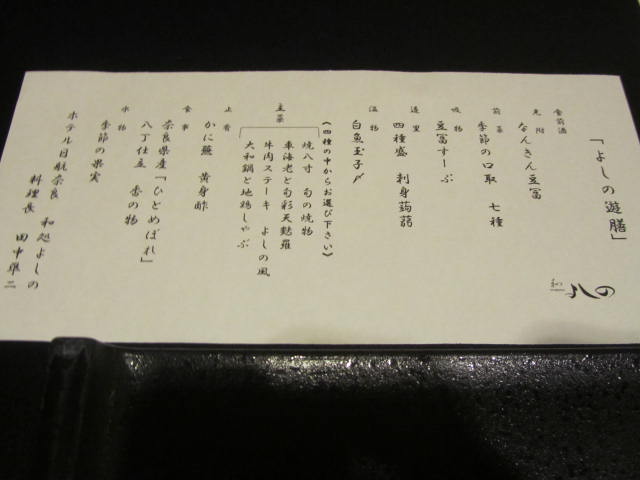 「よしの遊膳」
和 よしの
食前酒
先附
なんきん豆冨
前菜
季節の口取 七種
吸物
豆冨すーぷ
造里
四種盛 刺身蒟蒻
温物
白魚玉子〆
主菜
(四種の中からお選び下さい)
焼八寸 旬の焼物
車海老と旬彩天麩羅
牛肉ステーキ よしの風
大和鍋と地鶏しゃぶ
止肴
かに蕪 黄身酢
食事
奈良県産「ひとめぼれ」
八丁仕立 香の物
水物
季節の果実
ホテル日航奈良 和処よしの
料理長 田中準二